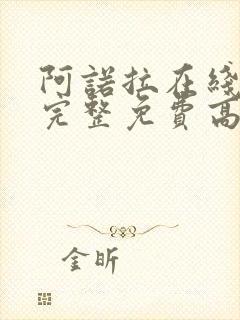 阿諾拉在綫
完整免費高
金昕